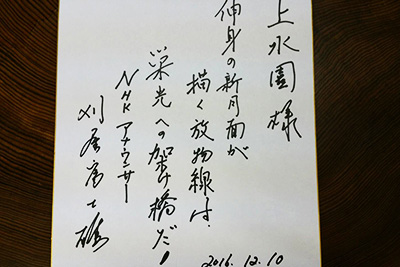 上水園様
伸身の新月面が
描く放物線は、
栄光への架け橋だ！
NHKアナウンサー
刈屋富士雄
2016.12.10